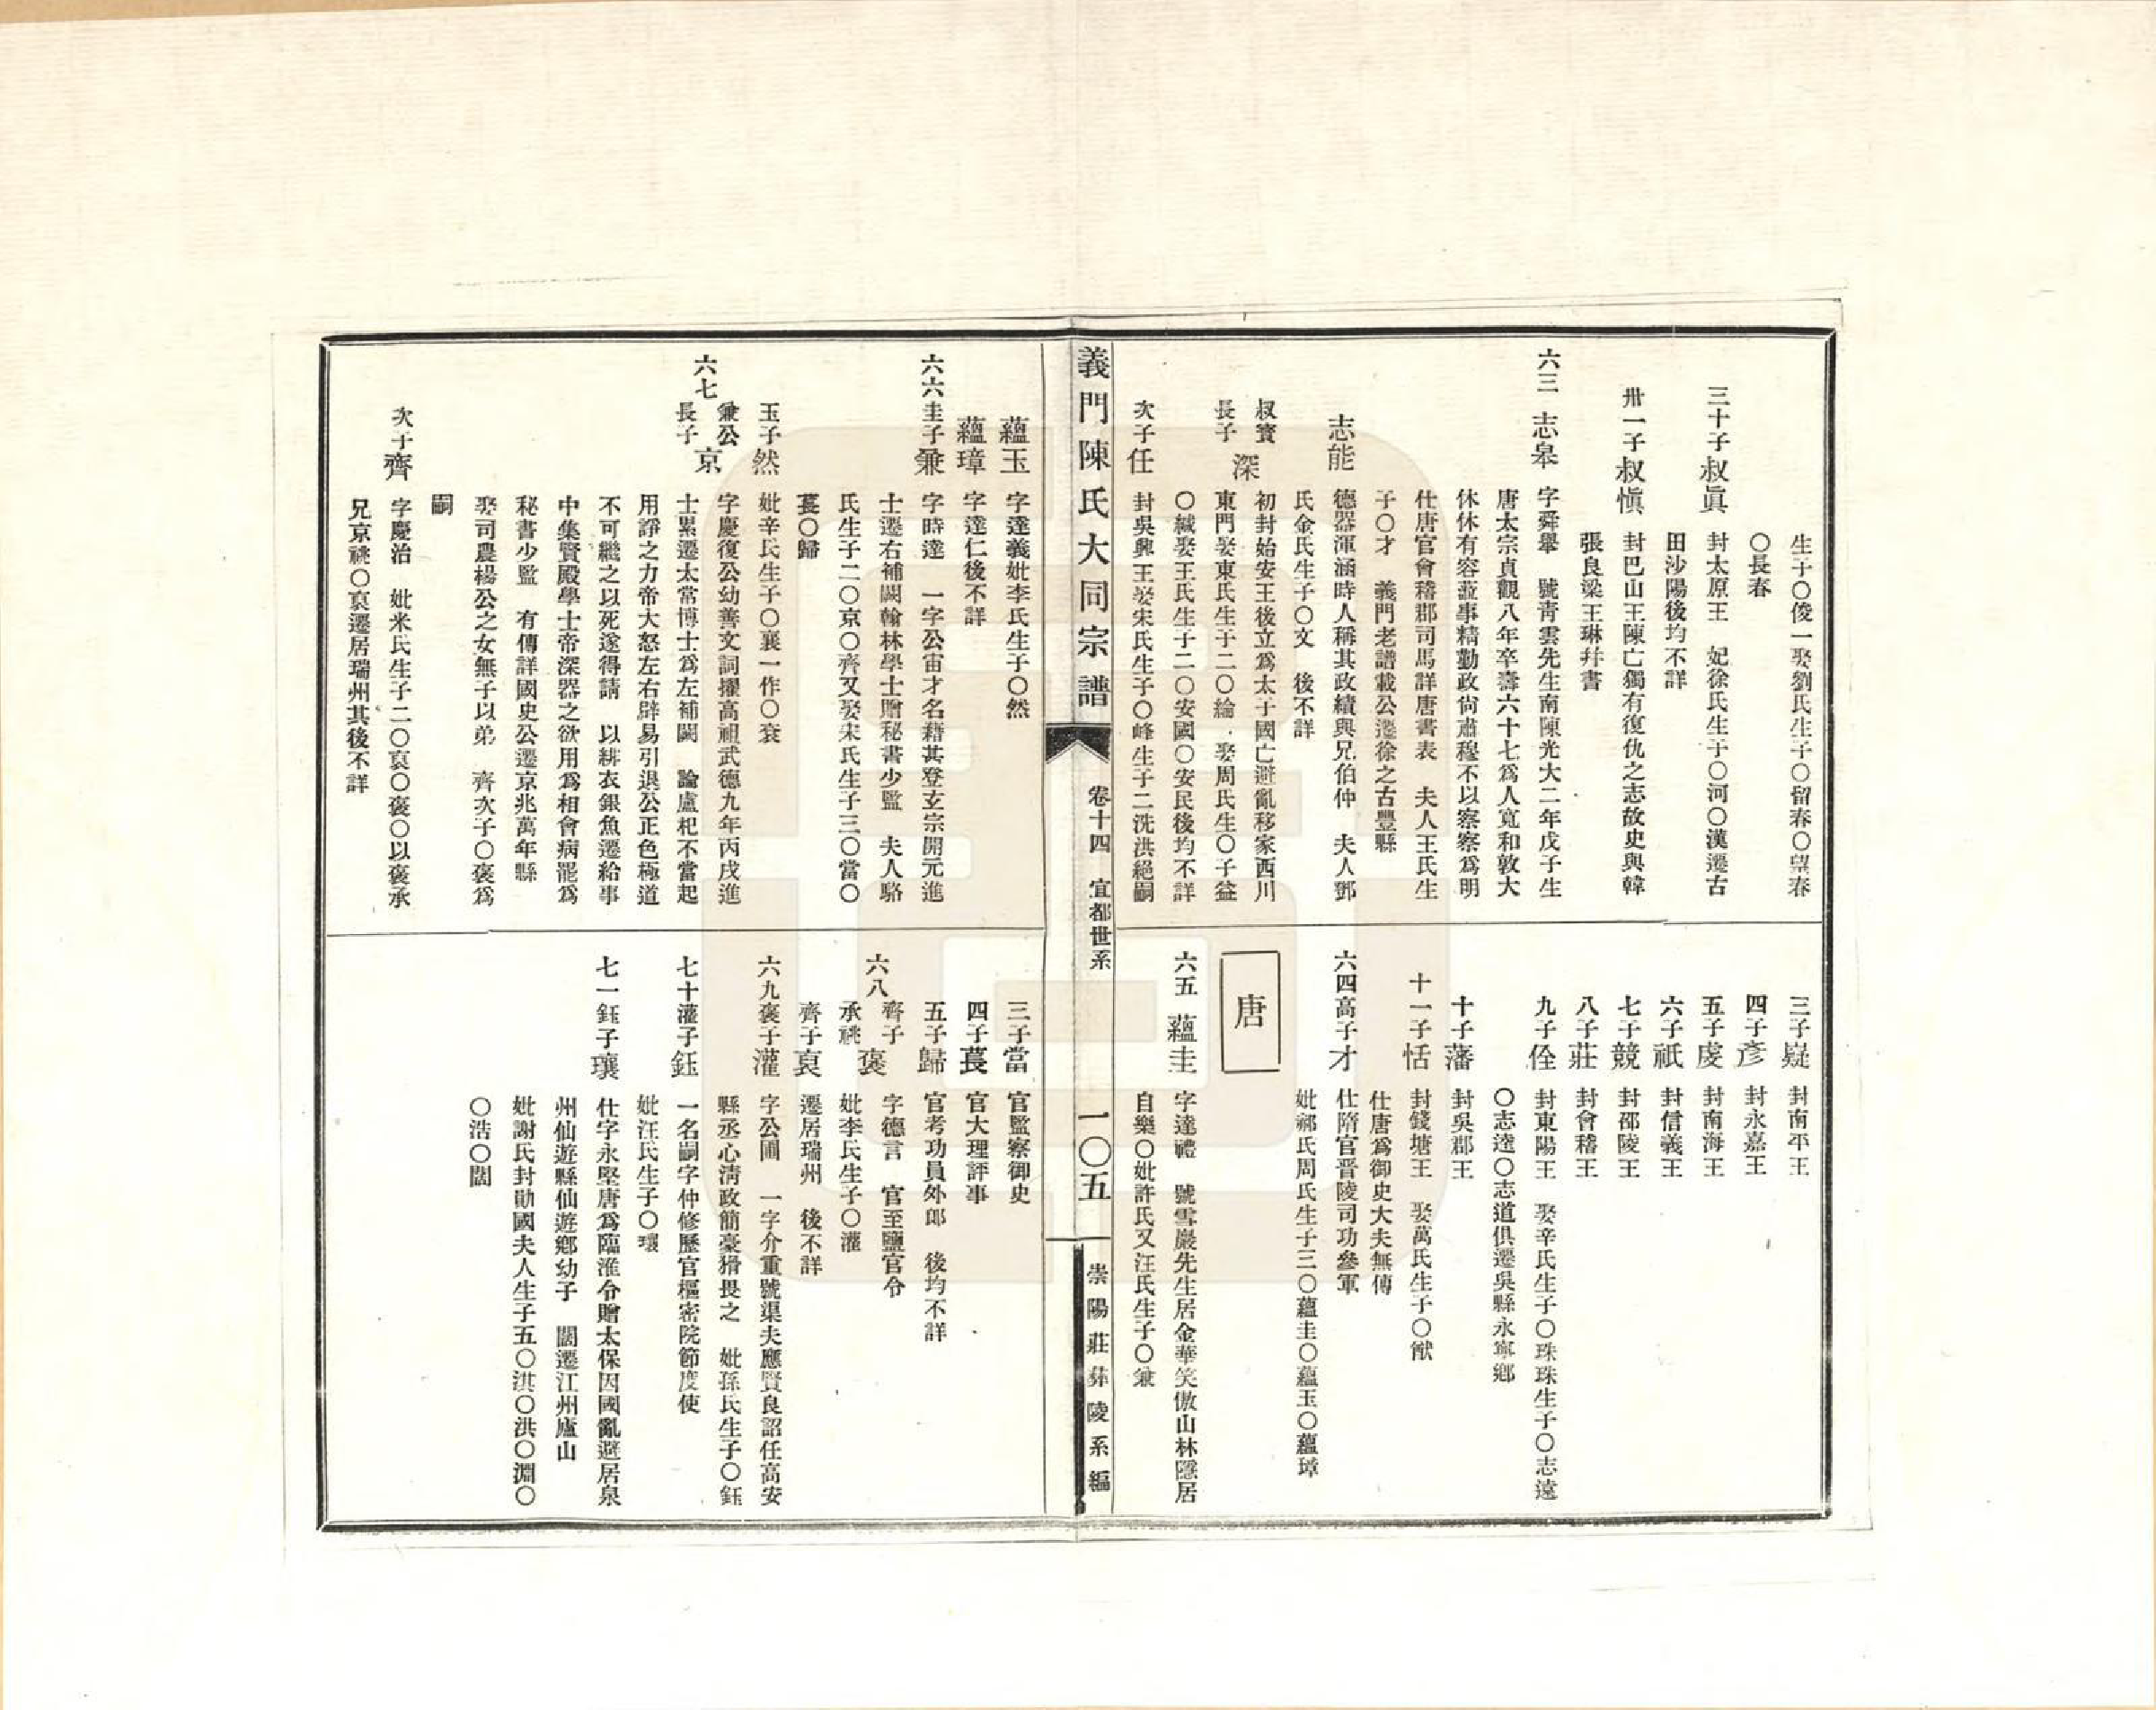 生子〇俊一娶劉氏生子〇留春〇望春
〇長春
三十子叔眞
封太原王　妃徐氏生子〇河〇漢遷古
田沙陽後均不詳
卅一子叔愼
封巴山王陳亡獨有復仇之志故史與韓
張良梁王琳幷書
六三 志皋
字舜舉　號青雲先生南陳光大二年戊子生
唐太宗貞觀八年卒壽六十七爲人寬和敦大
休休有容蒞事精勤政尙肅穆不以察察爲明
仕唐官會稽郡司馬詳唐書表　夫人王氏生
子〇才　義門老譜載公遷徐之古豐縣
志能
德器渾涵時人稱其政績與兄伯仲　夫人鄧
氏金氏生子〇文　後不詳
叔寶長子 深
初封始安王後立爲太子國亡避亂移家西川
東門娶東氏生子二〇綸　娶周氏生〇子益
〇緘娶王氏生子二〇安國〇安民後均不詳
次子任
封吳興王娶宋氏生子〇峰生子二洗洪絕嗣
三子嶷　封南平王
四子彥　封永嘉王
五子虔　封南海王
六子祇　封信義王
七子競　封邵陵王
八子莊　封會稽王
九子佺　封東陽王　娶辛氏生子〇珠珠生子〇志遠
〇志逵〇志道俱遷吳縣永寧鄉
十子藩　封吳郡王
十一子恬　封錢塘王　娶萬氏生子〇猷
仕唐爲御史大夫無傳
六四高子才　仕隋官晋陵司功參軍
妣郝氏周氏生子三〇蘊圭〇蘊玉〇蘊璋
唐
六五 蘊圭
字達禮　號雪巖先生居金華笑傲山林隱居
自樂〇妣許氏又汪氏生子〇兼
義門陳氏大同宗譜
卷十四　宜都世系
一〇五
崇陽莊彝陵系編
蘊玉　字達義妣李氏生子〇然
蘊璋　字達仁後不詳
六六圭子兼
字時達　一字公宙才名藉甚登玄宗開元進
士遷右補闕翰林學士贈秘書少監　夫人駱
氏生子二〇京〇齊又娶宋氏生子三〇當〇
萇〇歸
玉子然　妣辛氏生子〇襄一作〇袞
六七 兼公長子 京
字慶復公幼善文詞擢高祖武德九年丙戌進
士累遷太常博士爲左補闕　論盧杞不當起
用諍之力帝大怒左右辟易引退公正色極道
不可繼之以死遂得請　以緋衣銀魚遷給事
中集賢殿學士帝深器之欲用爲相會病罷爲
秘書少監　有傳詳國史公遷京兆萬年縣
娶司農楊公之女無子以弟　齊次子〇褒爲
嗣
次子齊
字慶治　妣米氏生子二〇裒〇褒〇以褒承
兄京祧〇裒遷居瑞州其後不詳
三子當　官監察御史
四子萇　官大理評事
五子歸　官考功員外郎　後均不詳
六八 齊子承祧 褒
字德言　官至鹽官令
妣李氏生子〇灌
齊子裒　遷居瑞州　後不詳
六九褒子灌
字公圃　一字介重號渠夫應賢良詔任高安
縣丞心淸政簡豪猾畏之　妣孫氏生子〇鈺
七十灌子鈺
一名嗣字仲修歷官樞密院節度使
妣汪氏生子〇瓌
七一鈺子瓌
仕字永堅唐爲臨淮令贈太保因國亂避居泉
州仙遊縣仙遊鄉幼子　闊遷江州廬山
妣謝氏封勛國夫人生子五〇淇〇洪〇淵〇
〇浩〇闊